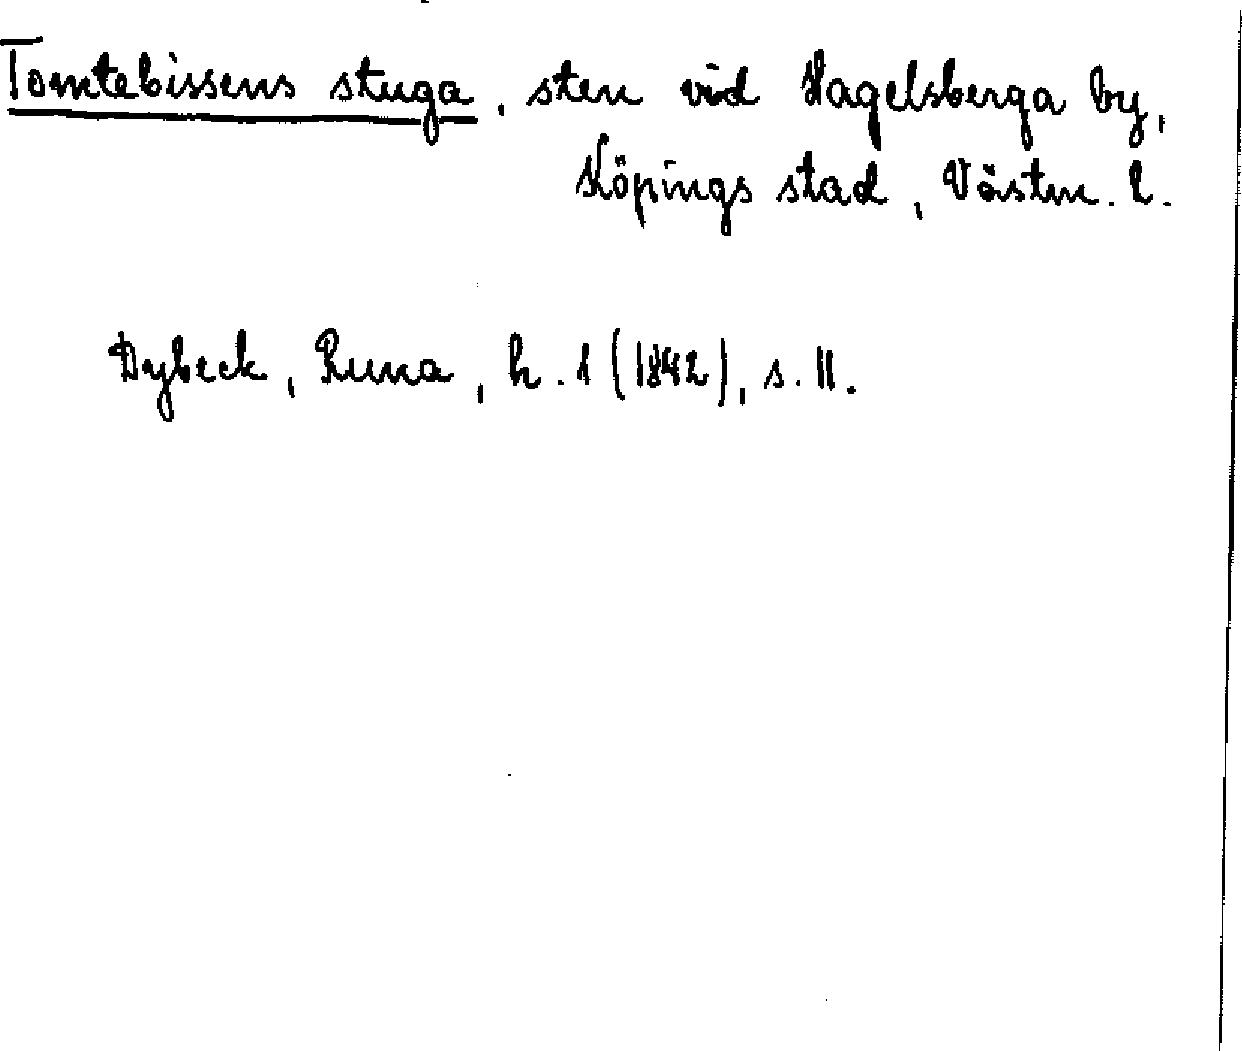 Tomtebissens stuga, sten vid Hagelsberga by,
Köpings stad, Västm. l.
Dybeck, Runa, h. 1 (1842), s. 11.